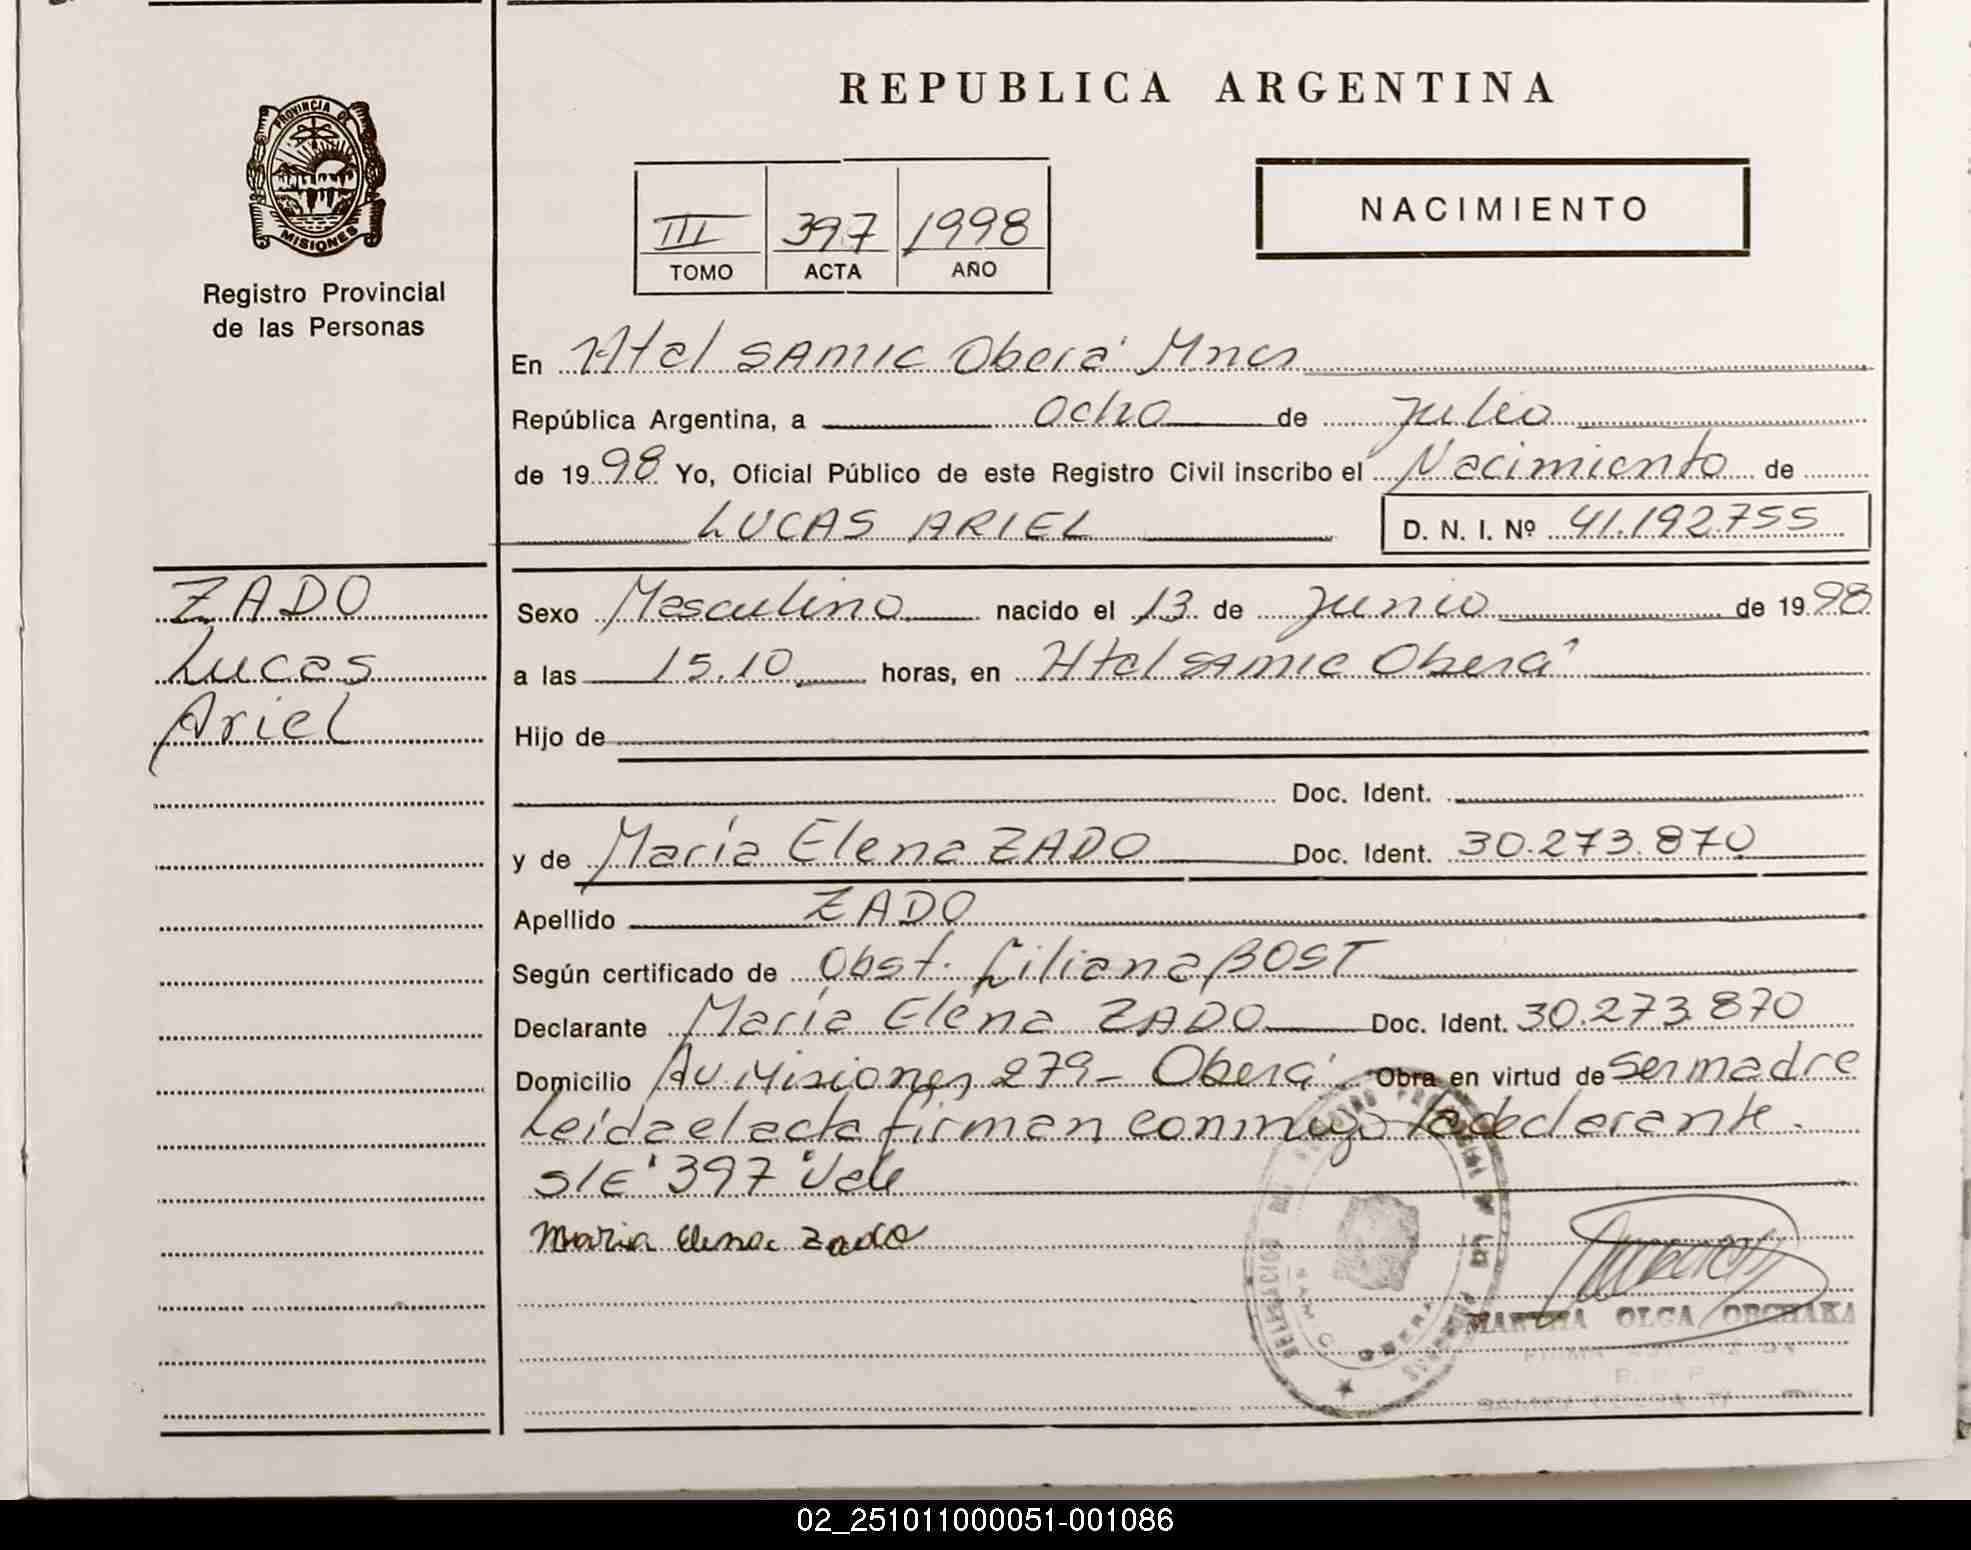 REPUBLICA ARGENTINA
PROVINCIA DE
MISIONES
Registro Provincial
de las Personas
III 397 1998
TOMO ACTA AÑO
NACIMIENTO
En Htal SAMIC Oberá Mnes
República Argentina, a ocho de Julio
de 1998 Yo, Oficial Público de este Registro Civil inscribo el Nacimiento de
LUCAS ARIEL D. N. I. Nº 41.192.755
ZADO
Lucas
Ariel
Sexo Masculino nacido el 13 de Junio de 1998
a las 15.10 horas, en Htal SAMIC Oberá
Hijo de
Doc. Ident.
y de María Elena ZADO Doc. Ident. 30.273.870
Apellido ZADO
Según certificado de Obst. Liliana BOST
Declarante María Elena ZADO Doc. Ident. 30.273.870
Domicilio Av Misiones 279 - Oberá. Obra en virtud de ser madre
Leída el acta firman conmigo la declarante.
S/E "397" Vale
Maria Elena Zado
MARTHA OLGA ORCHAKA
OBERA
R. P. P.
02_251011000051-001086